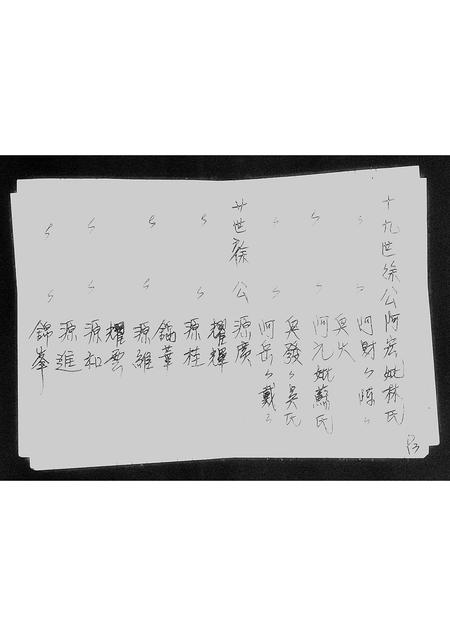 十九世徐公阿宏妣林氏
〃 〃 阿財〃陳〃
臭火
〃 〃 阿元妣蘇氏
〃 〃 臭發〃吳氏
阿岳〃戴〃
廿世徐公源廣
耀輝
〃 〃 源桂
錦華
〃 〃 源維
耀雲
〃 〃 源和
源進
〃 〃 錦峯
P3